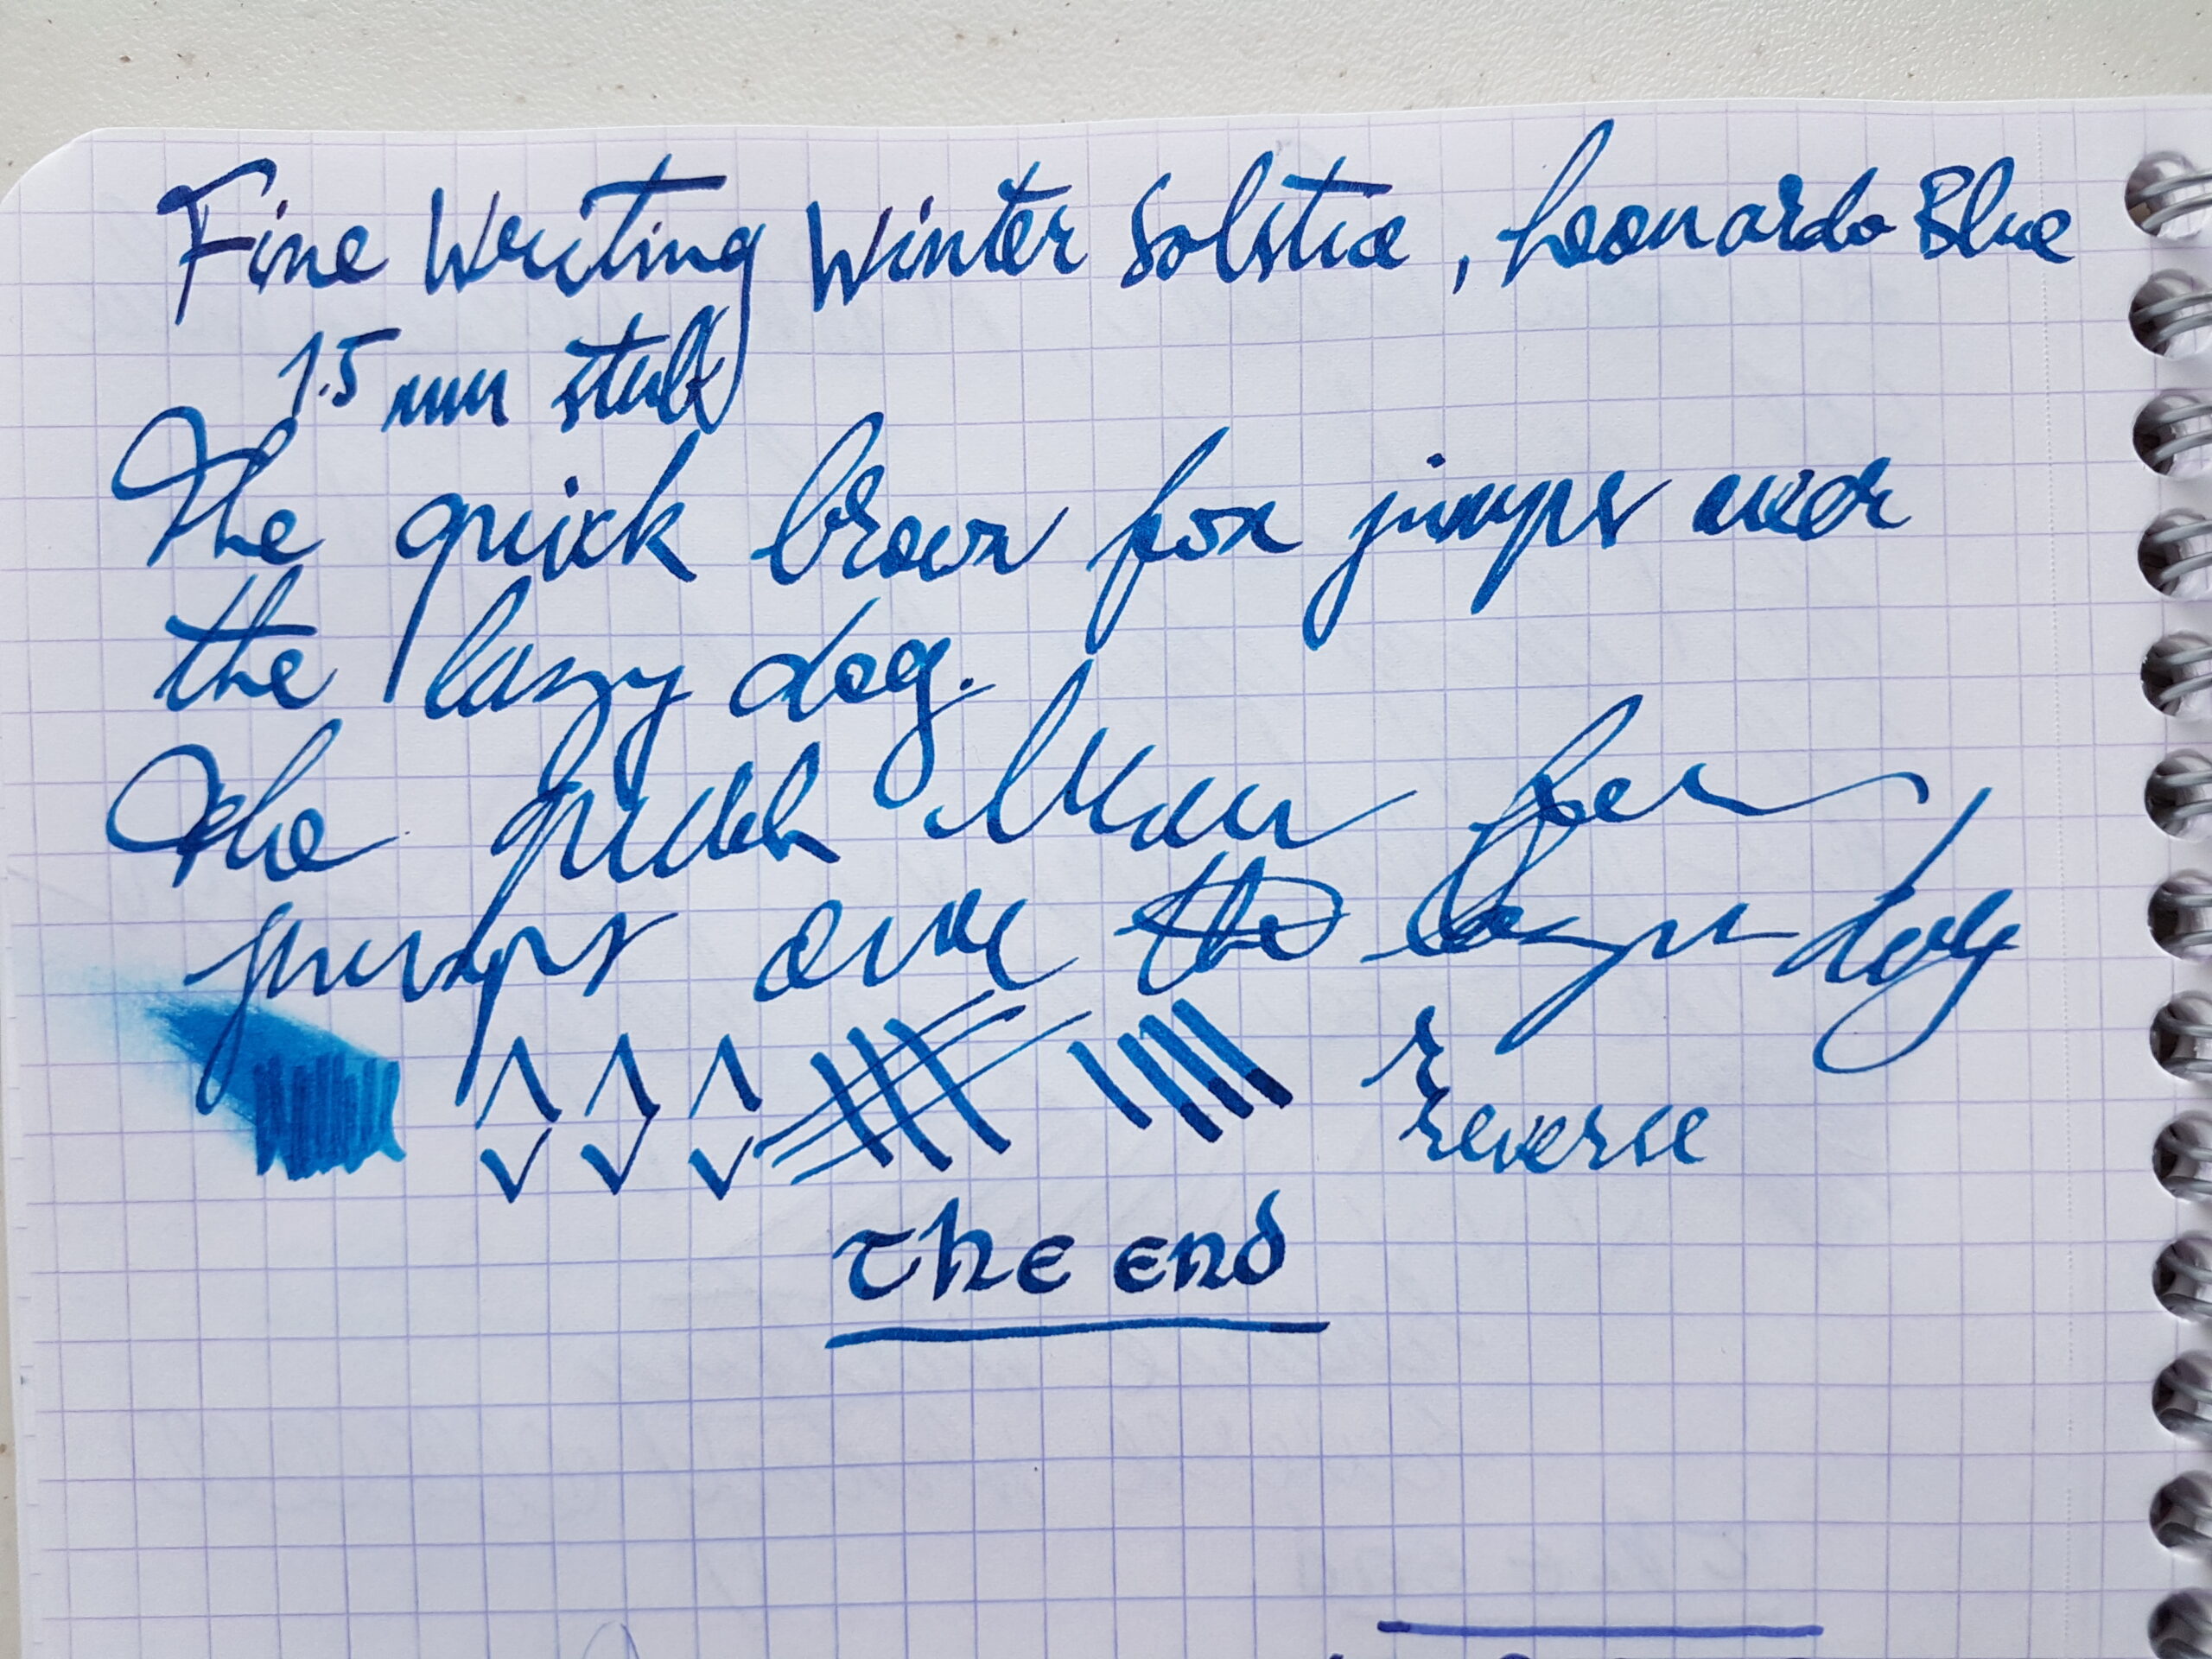 Fine Writing Winter Solstice, Leonardo Blue
1.5 mm stub
The quick brown fox jumps over
the lazy dog.
The quick brown fox
jumps over the lazy dog
reverse
The end